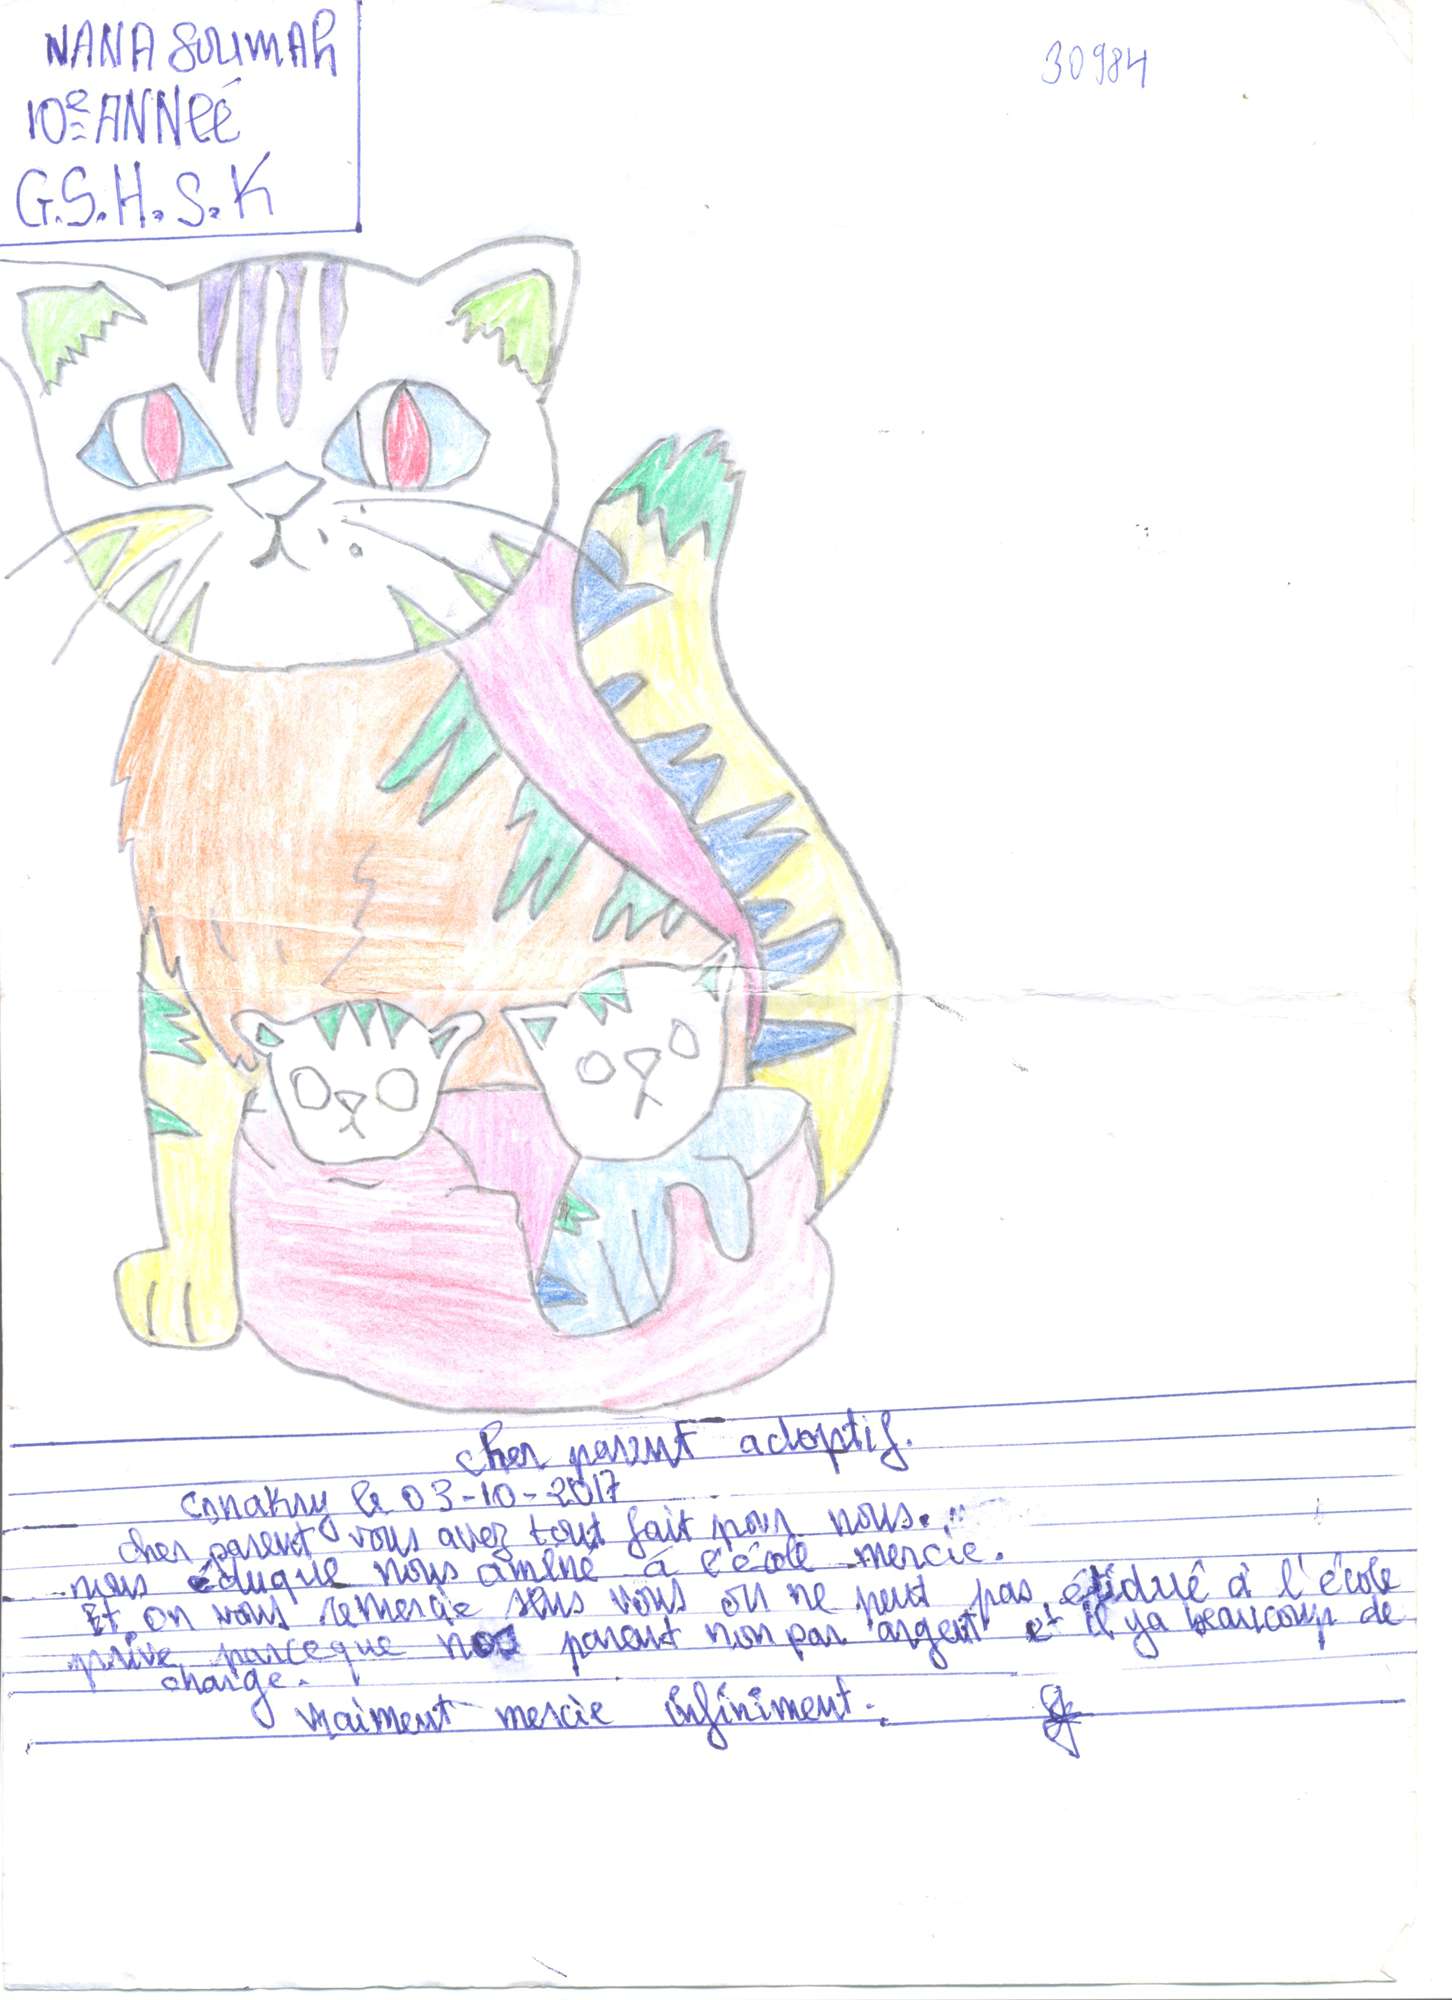 NANA SOUMAH
10e ANNéé
G.S.H.S.K
30984
cher parent adoptif.
Conakry le 03-10-2017
cher parent vous avez tout fait pour nous.
nous éduque nous améné à l'école mercie.
Et on vous remercie sans vous on ne peut pas étidué à l'école
prive parceque nos parent non pas argent et il ya beaucoup de
charge.
vraiment mercie infiniment.